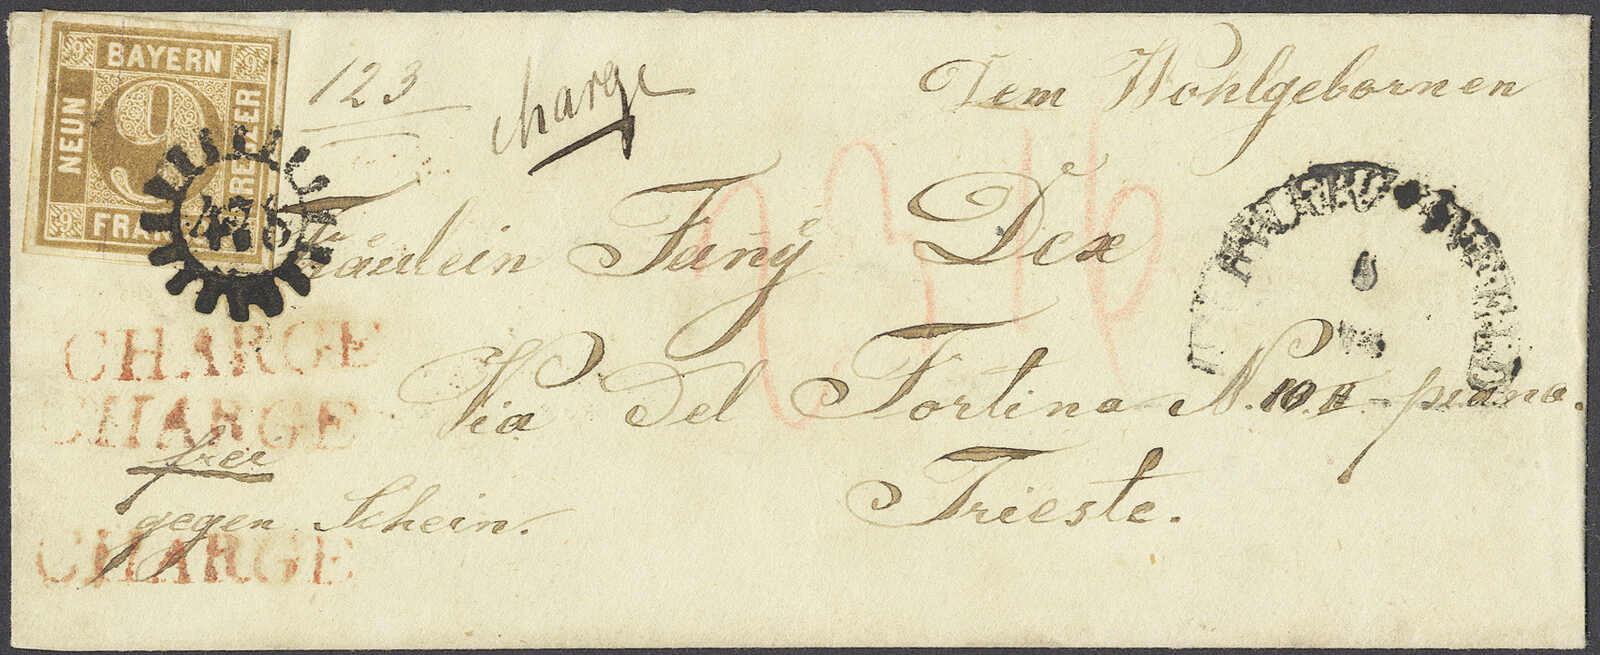 BAYERN
NEUN
9
9
9
9
FRAN
123
Charge
Dem Wohlgebornen
Fräulein Fany Dex
Via Del Fortina N. 10 II piano.
Trieste.
CHARGE
CHARGE
frei
gegen Schein.
CHARGE